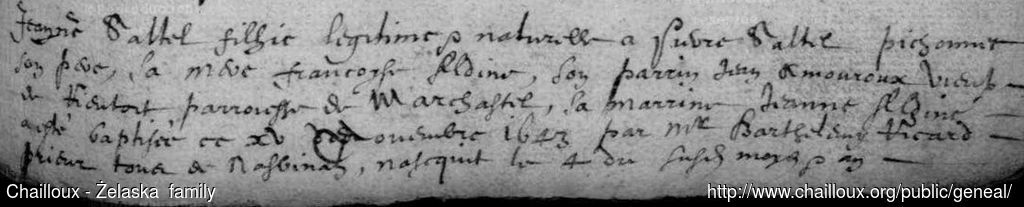 Jeanne Saltel filhie legitime & naturelle a pierre Saltel pichonnie
son pere, sa mere françoyse Aldine, son parrin Jean Amouroux vieux
de Rieutort, parroiesse de Marchastel, sa marrine Jeanne Aldine
a este baptisée ce XV novembre 1643 par Mre Barthelemy Ricard
prieur toua de Nasbinals, nasquit le 4 du susd moys & an
Chailloux - Żelaska family
http://www.chailloux.org/public/geneal/